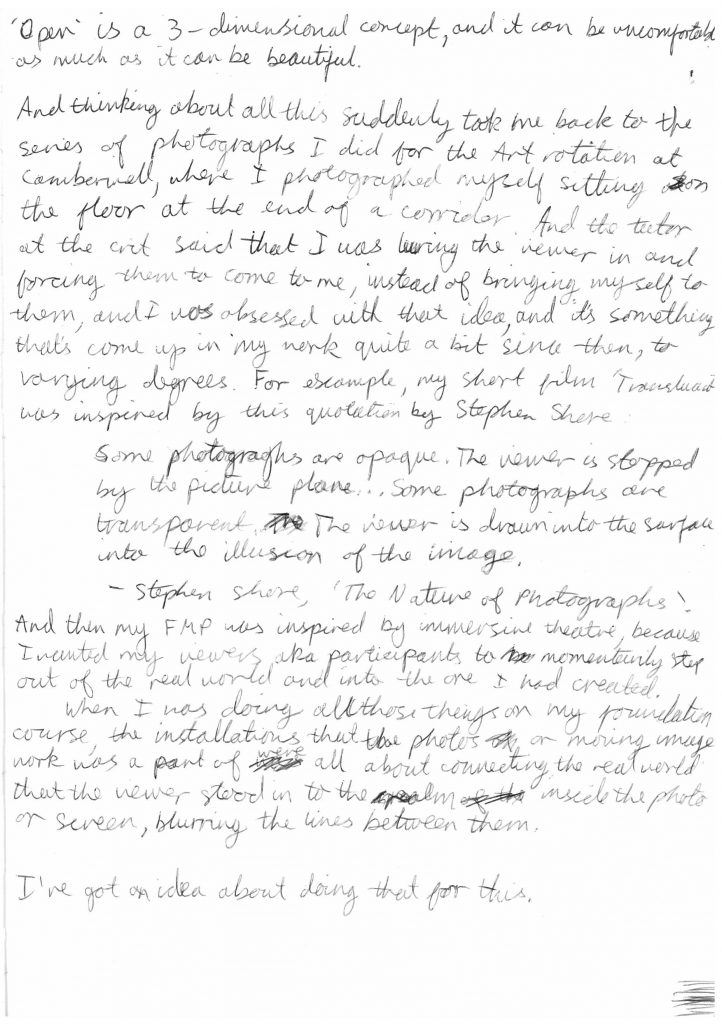 'Open' is a 3-dimensional concept, and it can be uncomfortable
as much as it can be beautiful.
And thinking about all this suddenly took me back to the
series of photographs I did for the Art rotation at
Camberwell, where I photographed myself sitting on
the floor at the end of a corridor. And the tutor
at the crit said that I was luring the viewer in and
forcing them to come to me, instead of bringing myself to
them, and I was obsessed with that idea, and it's something
that's come up in my work quite a bit since then, to
varying degrees. For example, my short film 'Transluant'
was inspired by this quotation by Stephen Shore:
Some photographs are opaque. The viewer is stopped
by the picture plane... Some photographs are
transparent. The viewer is drawn into the surface
into the illusion of the image.
- Stephen Shore, 'The Nature of Photographs'.
And then my FMP was inspired by immersive theatre, because
I wanted my viewers aka participants to momentarily step
out of the real world and into the one I had created.
When I was doing all those things on my foundation
course, the installations that the photos or moving image
work was a part of were all about connecting the real world
that the viewer stood in to the realm inside the photo
or screen, blurring the lines between them.
I've got an idea about doing that for this.